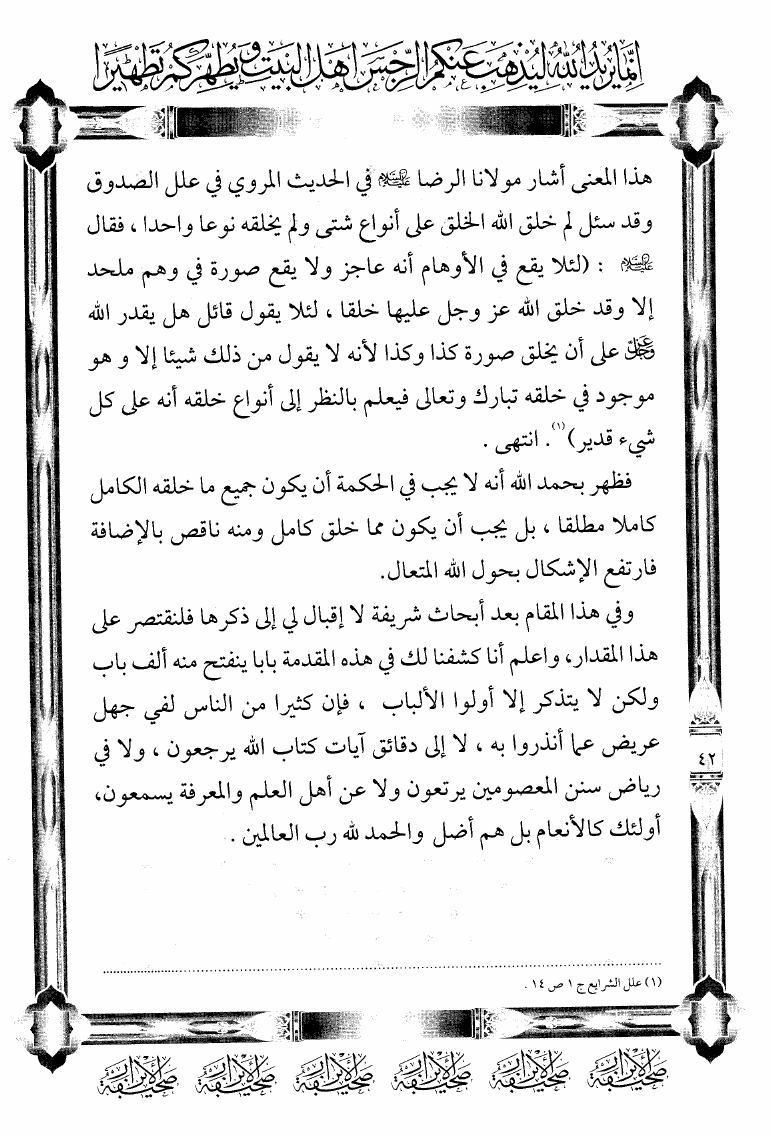 إنما يريد الله ليذهب عنكم الرجس اهل البيت ويطهركم تطهيرا
هذا المعنى أشار مولانا الرضا عليه السلام في الحديث المروي في علل الصدوق
وقد سئل لم خلق الله الخلق على أنواع شتى ولم يخلقه نوعا واحدا ، فقال
عليه السلام : (لئلا يقع في الأوهام أنه عاجز ولا يقع صورة في وهم ملحد
إلا وقد خلق الله عز وجل عليها خلقا ، لئلا يقول قائل هل يقدر الله
عز وجل على أن يخلق صورة كذا وكذا لأنه لا يقول من ذلك شيئا إلا و هو
موجود في خلقه تبارك وتعالى فيعلم بالنظر إلى أنواع خلقه أنه على كل
شيء قدير)(١). انتهى .
فظهر بحمد الله أنه لا يجب في الحكمة أن يكون جميع ما خلقه الكامل
كاملا مطلقا ، بل يجب أن يكون مما خلق كامل ومنه ناقص بالإضافة
فارتفع الإشكال بحول الله المتعال.
وفي هذا المقام بعد أبحاث شريفة لا إقبال لي إلى ذكرها فلنقتصر على
هذا المقدار، واعلم أنا كشفنا لك في هذه المقدمة بابا ينفتح منه ألف باب
ولكن لا يتذكر إلا أولوا الألباب ، فإن كثيرا من الناس لفي جهل
عريض عما أنذروا به ، لا إلى دقائق آيات كتاب الله يرجعون ، ولا في
رياض سنن المعصومين يرتعون ولا عن أهل العلم والمعرفة يسمعون،
أولئك كالأنعام بل هم أضل والحمد لله رب العالمين .
٤٢
(١) علل الشرايع ج ١ ص ١٤ .
صحيفة الأبرار صحيفة الأبرار صحيفة الأبرار صحيفة الأبرار صحيفة الأبرار صحيفة الأبرار